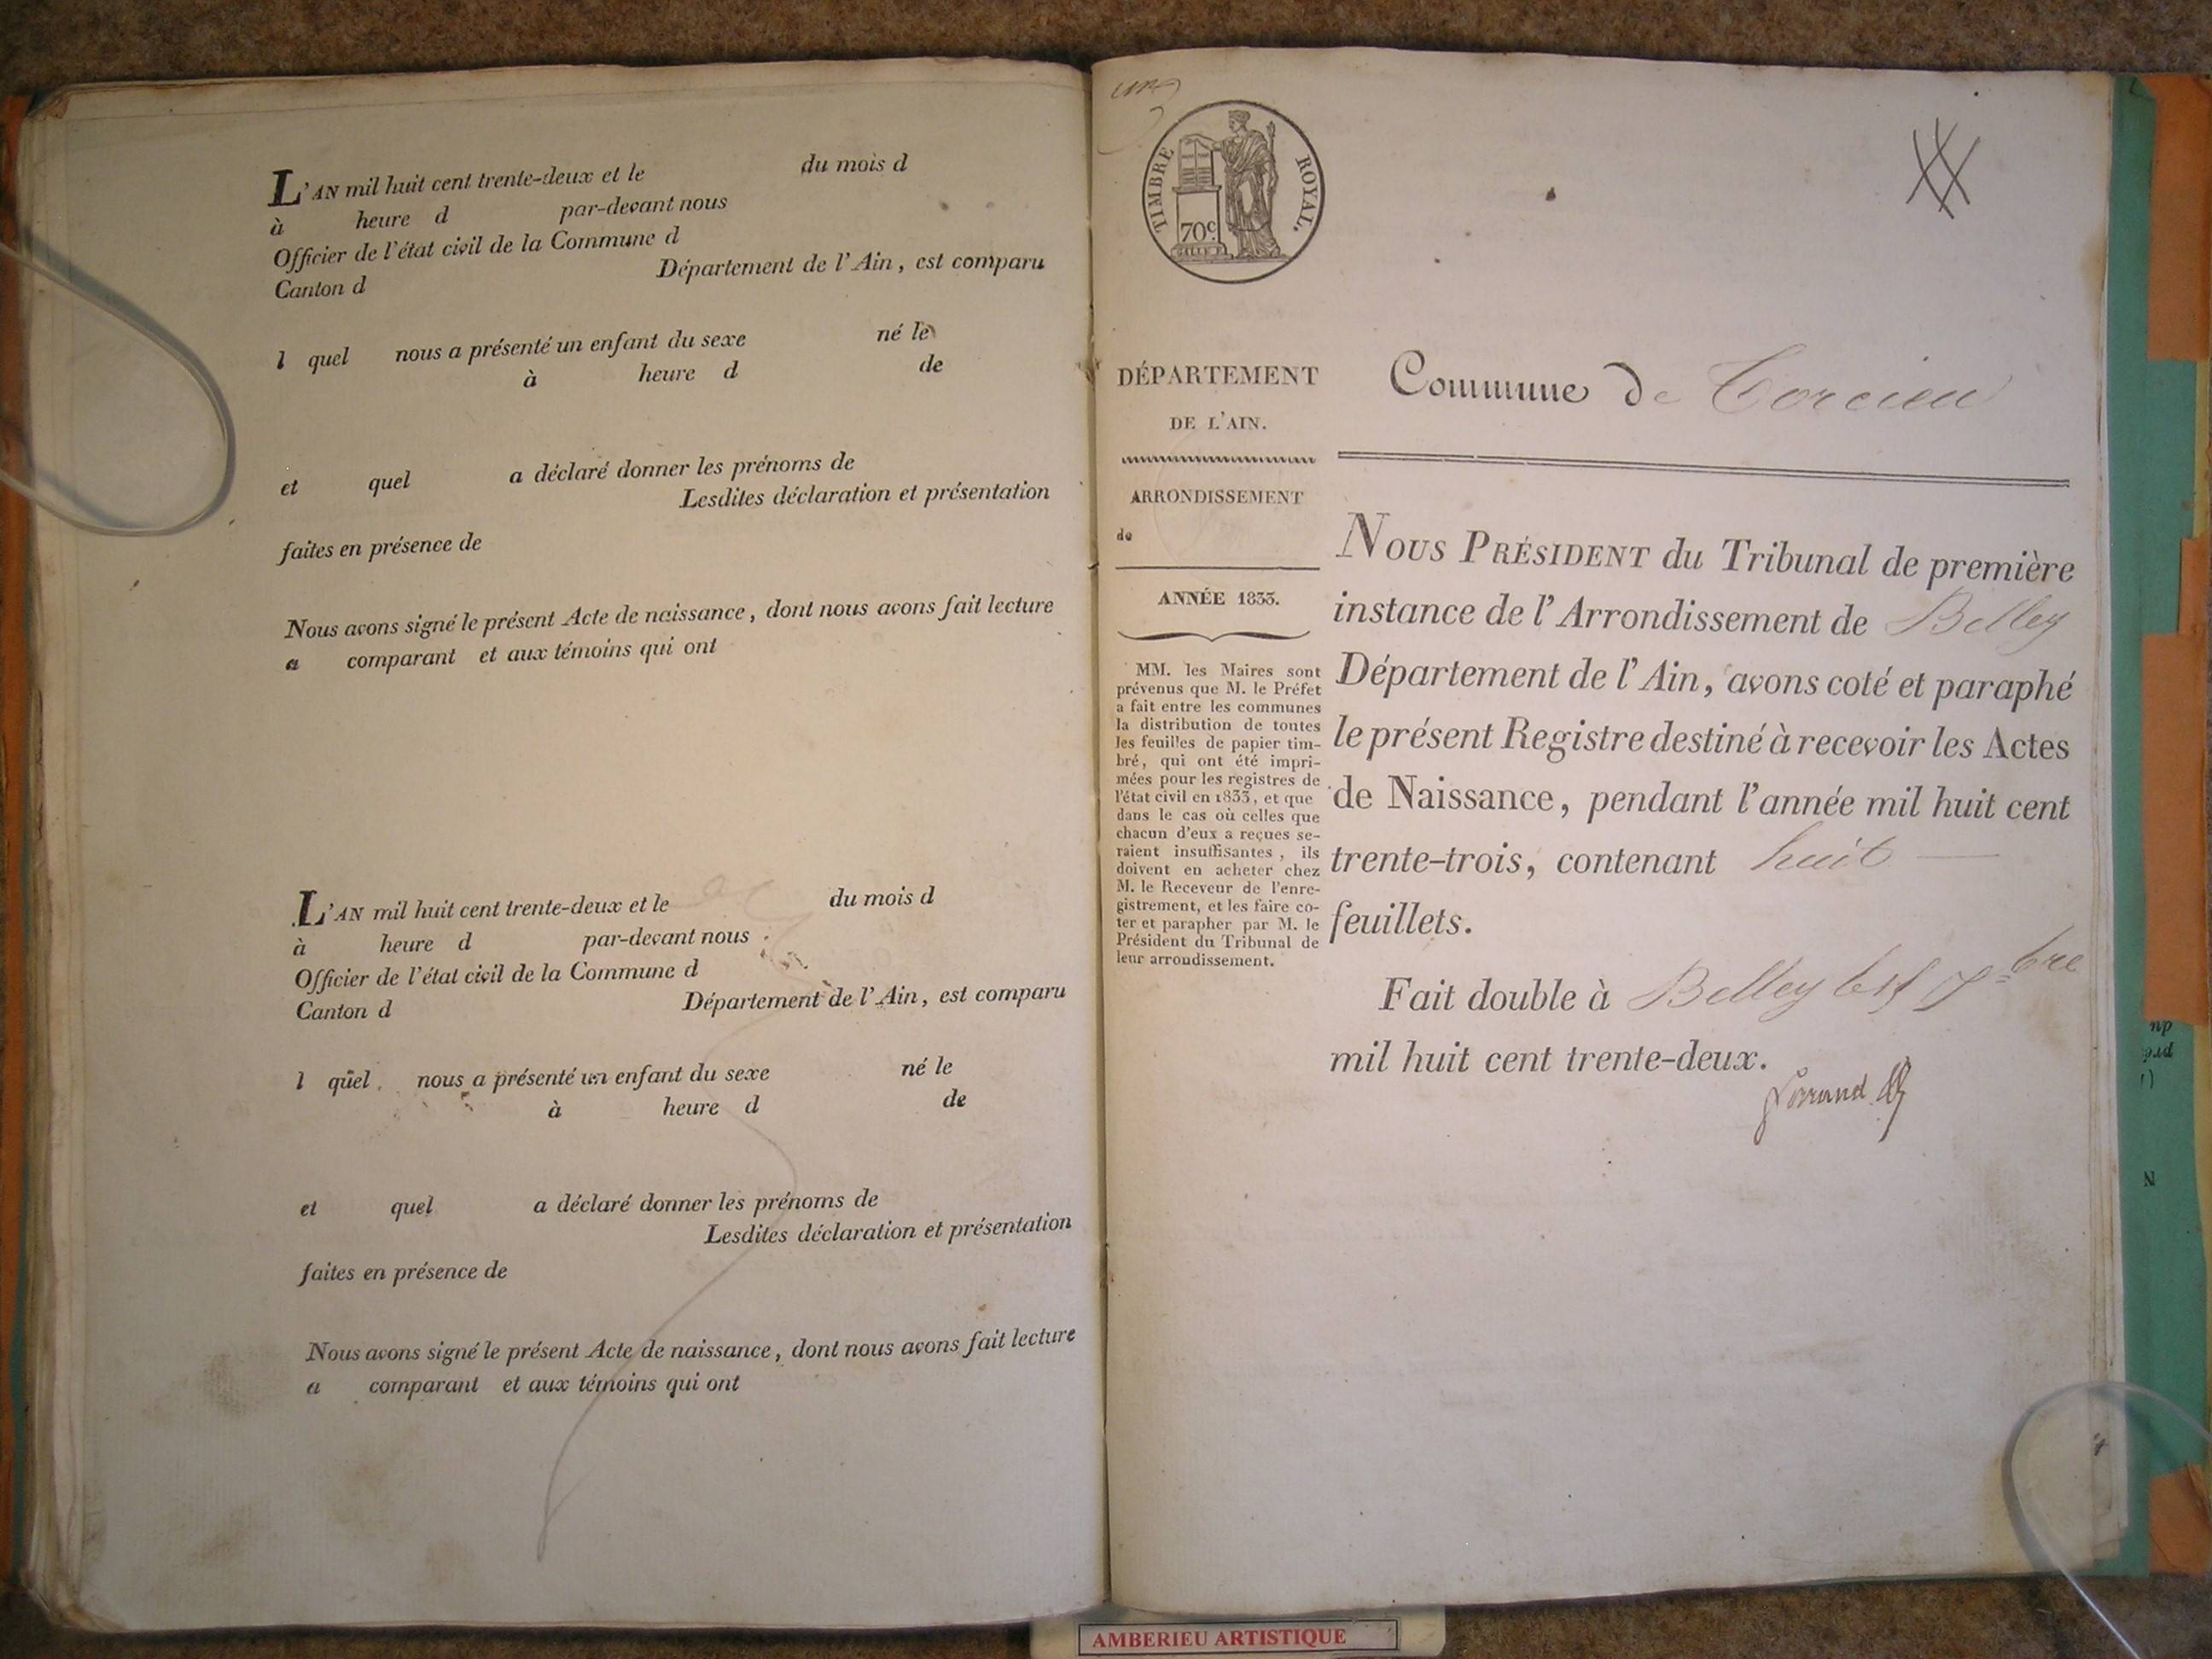 L'AN mil huit cent trente-deux et le du mois d
à heure d par-devant nous
Officier de l'état civil de la Commune d
Canton d Département de l'Ain, est comparu
l quel nous a présenté un enfant du sexe né le
à heure d de
et quel a déclaré donner les prénoms de
Lesdites déclaration et présentation
faites en présence de
Nous avons signé le présent Acte de naissance, dont nous avons fait lecture
a comparant et aux témoins qui ont
L'AN mil huit cent trente-deux et le du mois d
à heure d par-devant nous
Officier de l'état civil de la Commune d
Canton d Département de l'Ain, est comparu
l quel nous a présenté un enfant du sexe né le
à heure d de
et quel a déclaré donner les prénoms de
Lesdites déclaration et présentation
faites en présence de
Nous avons signé le présent Acte de naissance, dont nous avons fait lecture
a comparant et aux témoins qui ont
un
TIMBRE ROYAL.
70c.
DÉPARTEMENT
DE L'AIN.
ARRONDISSEMENT
de
ANNÉE 1833.
MM. les Maires sont
prévenus que M. le Préfet
a fait entre les communes
la distribution de toutes
les feuilles de papier tim-
bré, qui ont été impri-
mées pour les registres de
l'état civil en 1833, et que
dans le cas où celles que
chacun d'eux a reçues se-
raient insuffisantes, ils
doivent en acheter chez
M. le Receveur de l'enre-
gistrement, et les faire co-
ter et parapher par M. le
Président du Tribunal de
leur arrondissement.
Commune de Torcieu
NOUS PRÉSIDENT du Tribunal de première
instance de l'Arrondissement de Belley
Département de l'Ain, avons coté et paraphé
le présent Registre destiné à recevoir les Actes
de Naissance, pendant l'année mil huit cent
trente-trois, contenant huit
feuillets.
Fait double à Belley le 7bre
mil huit cent trente-deux.
AMBERIEU ARTISTIQUE